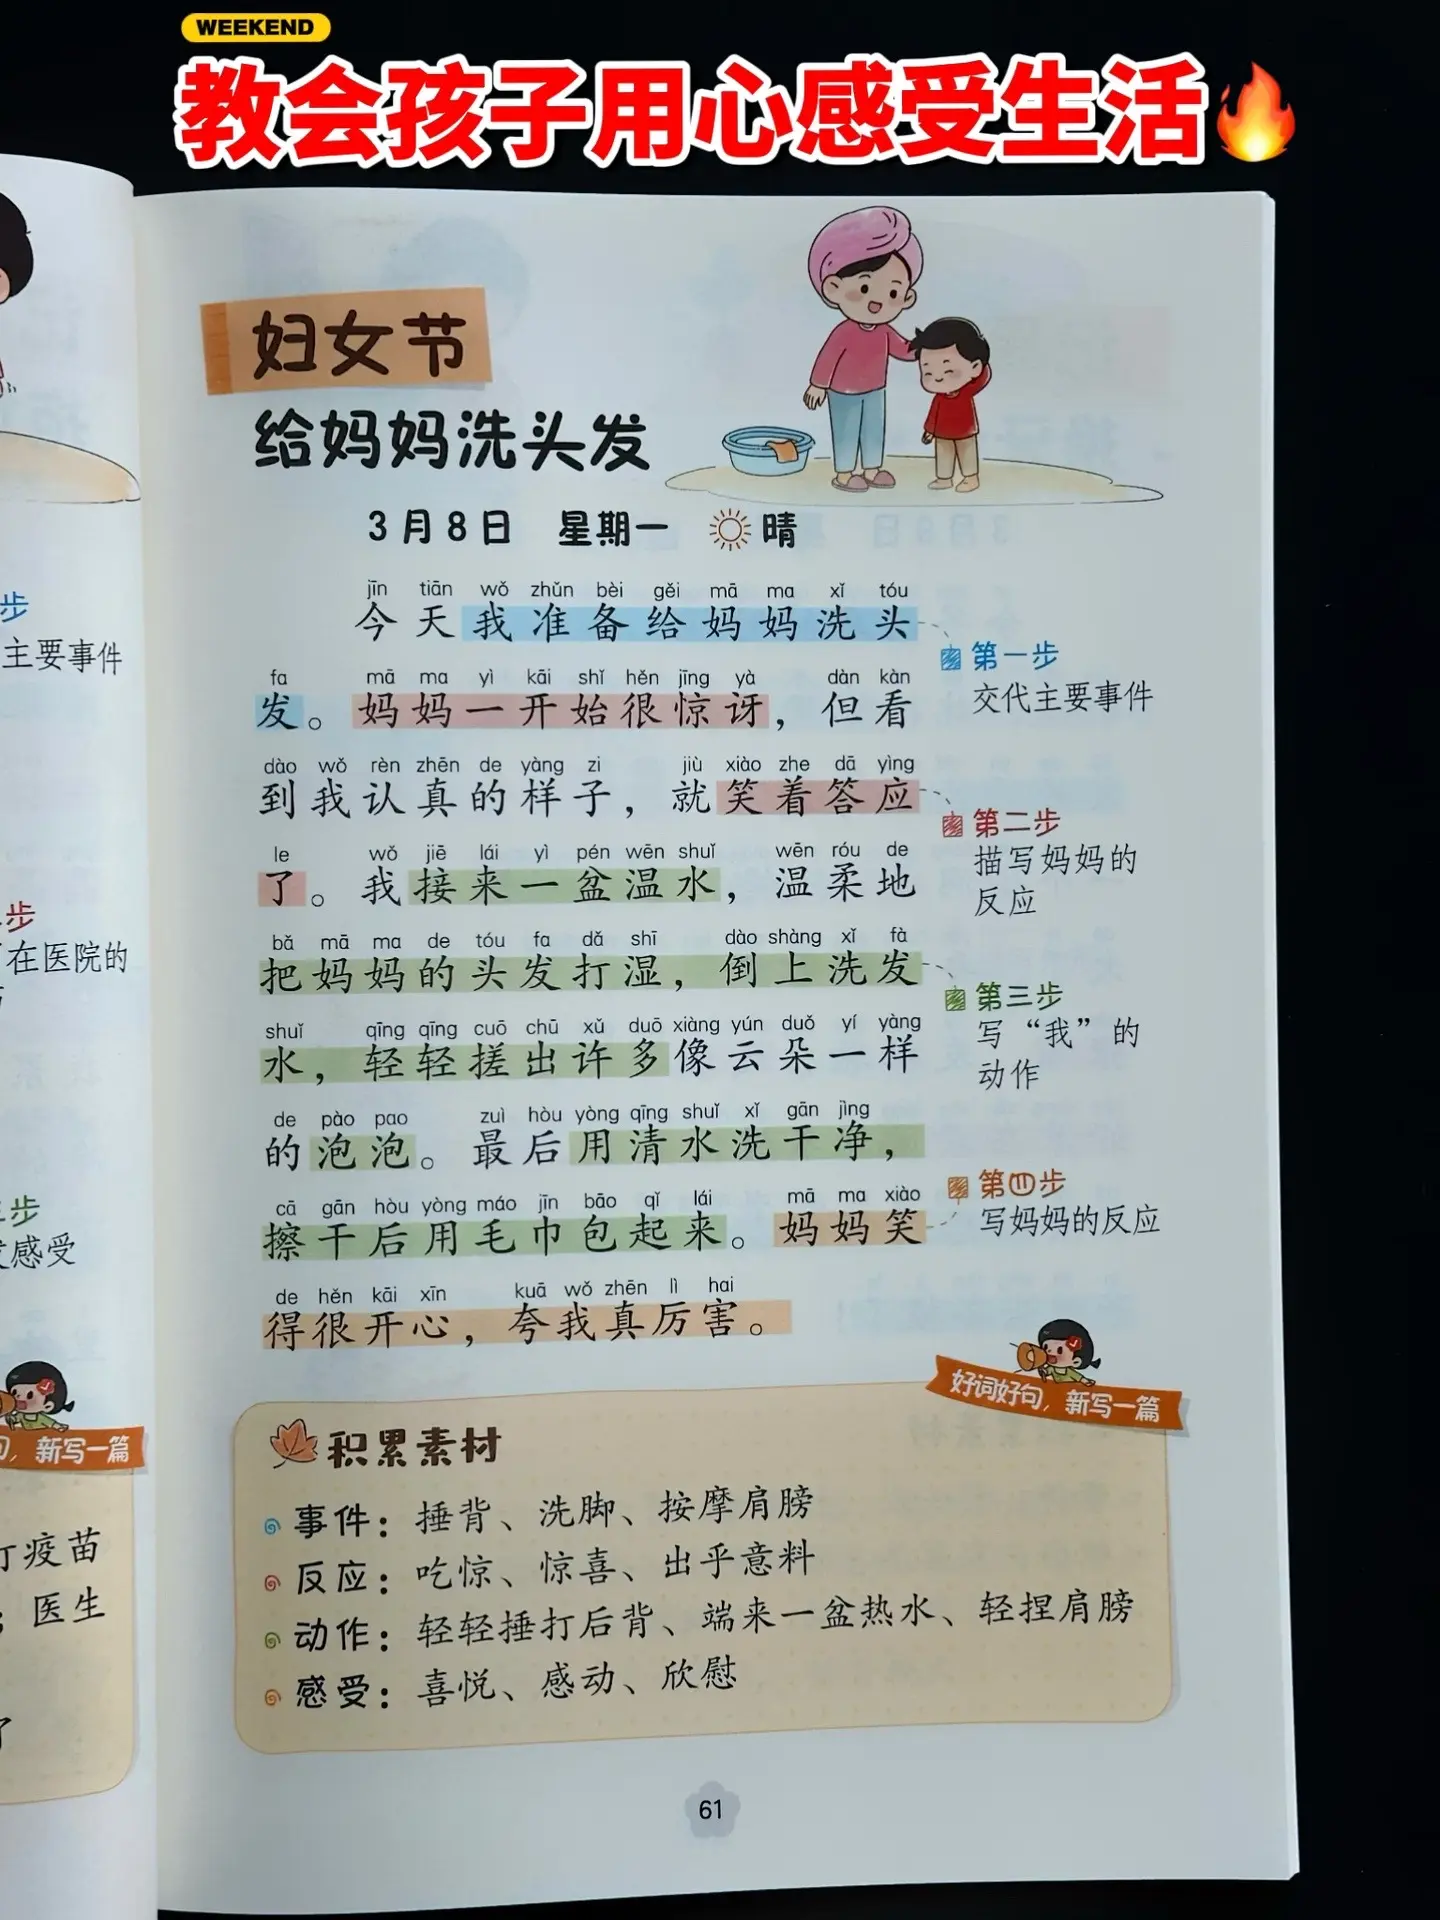 WEEKEND
教会孩子用心感受生活
妇女节
给妈妈洗头发
3月8日 星期一 晴
jīn tiān wǒ zhǔn bèi gěi mā ma xǐ tóu
今天我准备给妈妈洗头
fa mā ma yì kāi shǐ hěn jīng yà dàn kàn
发。妈妈一开始很惊讶，但看
dào wǒ rèn zhēn de yàng zi jiù xiào zhe dā yìng
到我认真的样子，就笑着答应
le wǒ jiē lái yì pén wēn shuǐ wēn róu de
了。我接来一盆温水，温柔地
bǎ mā ma de tóu fa dǎ shī dào shàng xǐ fà
把妈妈的头发打湿，倒上洗发
shuǐ qīng qīng cuō chū xǔ duō xiàng yún duǒ yí yàng
水，轻轻搓出许多像云朵一样
de pào pao zuì hòu yòng qīng shuǐ xǐ gān jìng
的泡泡。最后用清水洗干净，
cā gān hòu yòng máo jīn bāo qǐ lái mā ma xiào
擦干后用毛巾包起来。妈妈笑
de hěn kāi xīn kuā wǒ zhēn lì hai
得很开心，夸我真厉害。
第一步
交代主要事件
第二步
描写妈妈的
反应
第三步
写“我”的
动作
第四步
写妈妈的反应
好词好句，新写一篇
积累素材
事件：捶背、洗脚、按摩肩膀
反应：吃惊、惊喜、出乎意料
动作：轻轻捶打后背、端来一盆热水、轻捏肩膀
感受：喜悦、感动、欣慰
61
步
主要事件
步
在医院的
步
感受
句，新写一篇
打疫苗
；医生
了